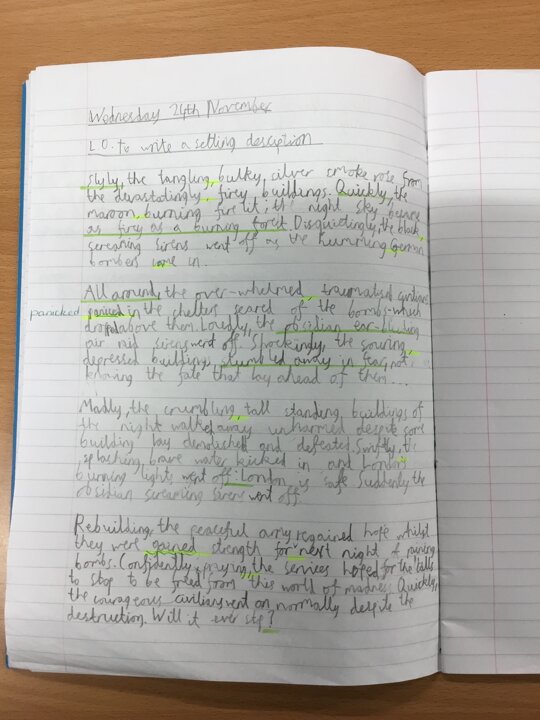 Wednesday 24th November
L.O. to write a setting desciption
Slyly, the tangling, bulky, silver smoke rose from
the devastadingly, firey buildings. Quickly, the
maroon, burning fire lit; the night sky became
as firey as a burning forest. Disquietingly, the black,
screaming sirens went off as the humming German
bombers came in.
All around, the over-whelmed, traumatised civilians
panicked
paniced in the shelters scared of the bombs which
droped above them. Loudly, the obsidian ear-
air raid sirens went off. Shockingly, the souring,
depressed buildings, stumbled away in fear, not
knowing the fate that lay ahead of them...
Madly, the crumbling, tall standing, buildings of
the night walked away unharmed despite some
building lay demolished and defeated. Swiftly, the
splashing brave water kicked in and London's
burning lights went off: London is safe. Suddenly, the
obsidian screaming sirens went off.
Rebuilding, the peaceful army regained hope whilst
they were gained strength for next night of
bombs. Confidently, praying, the services hoped for the
to stop to be freed from this world of madness. Quickly,
the courageous civilians went on normally despite the
destruction. Will it ever stop?